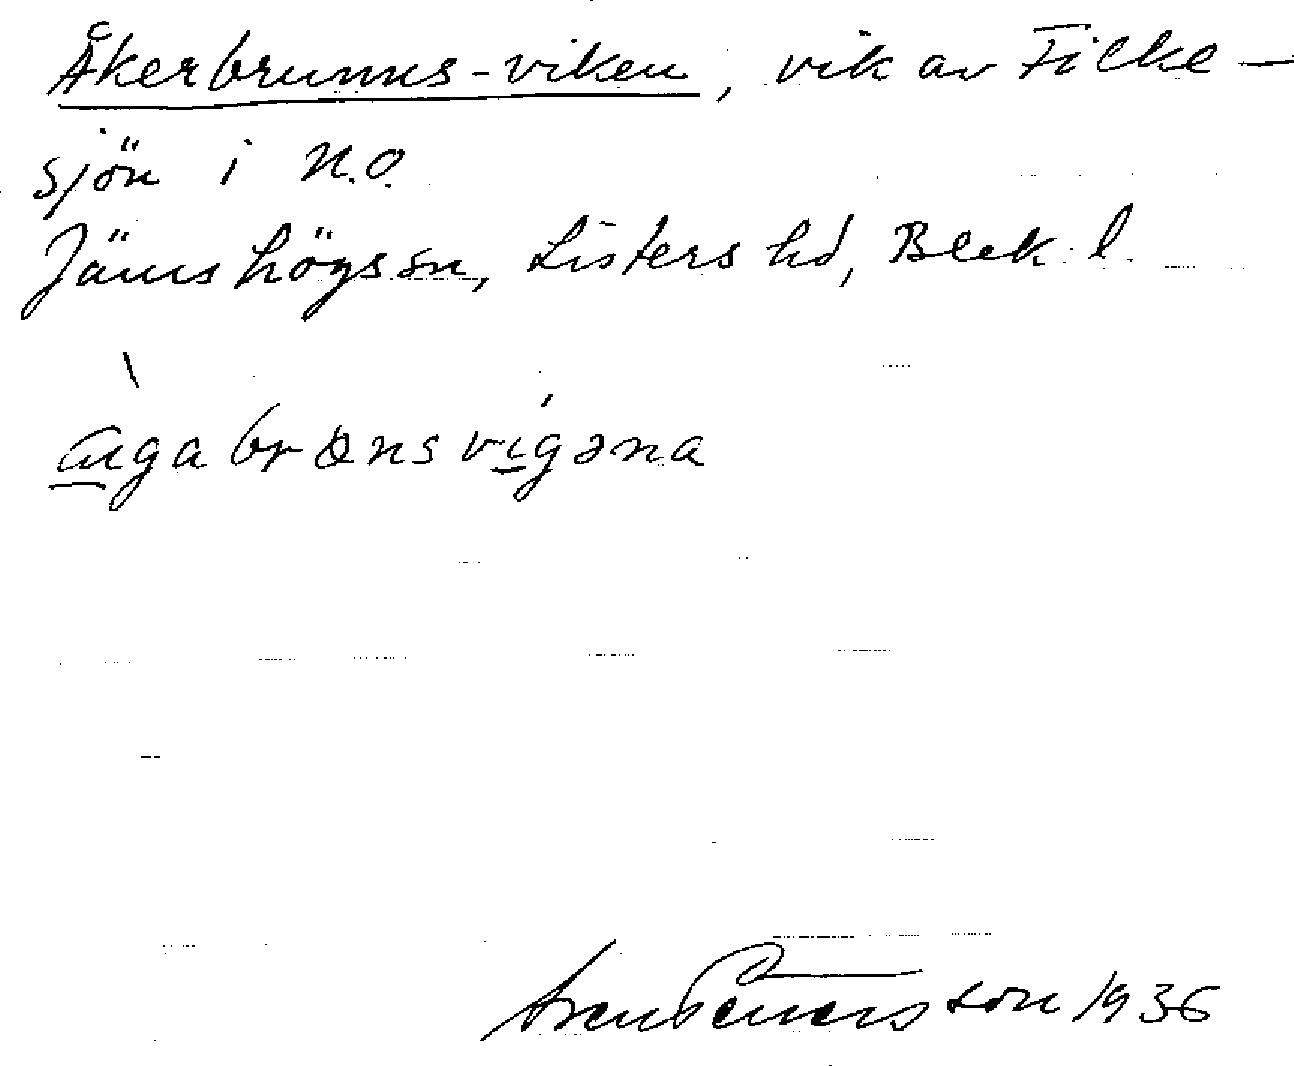 Åkerbrunns-viken, vik av Filke-
sjön i N.O.
Jämshögs sn, Listers hd, Blek. l.
vigəna
1936